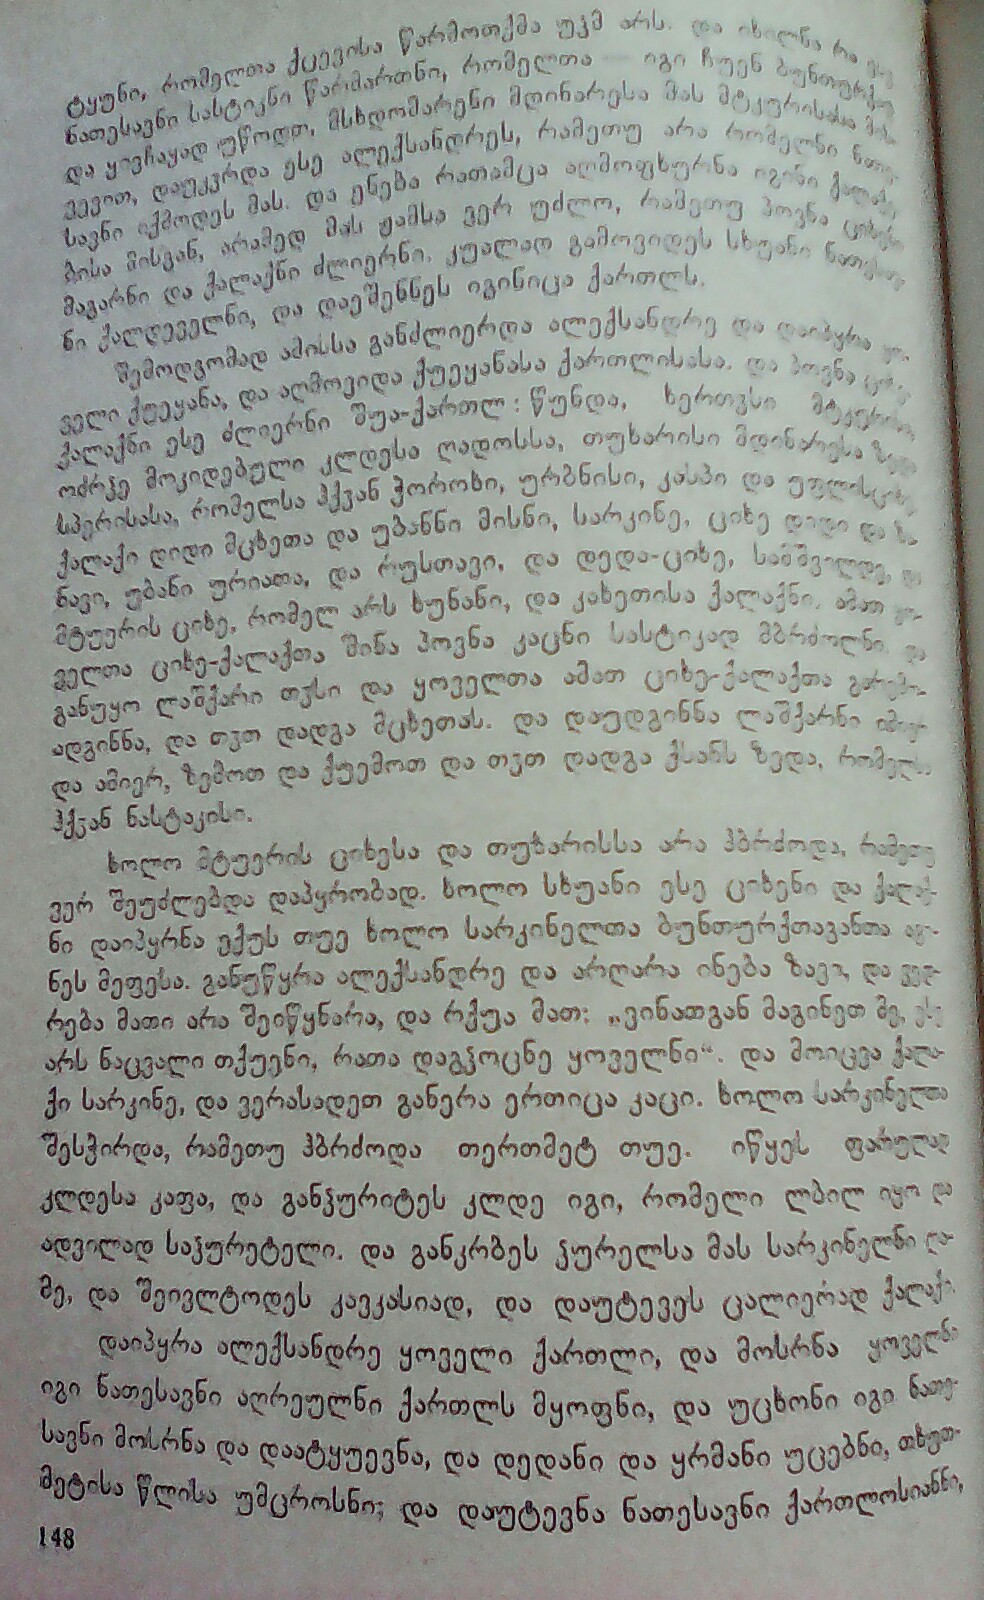 ტყუნი, რომელთა ქცევისა წარმოთქმა უკმ არს. და იხილნა რა ესე
ნათესავნი სასტიკნი წარმართნი, რომელთა — იგი ჩუენ ბუნთურქად
და ყივჩაყად უწოდთ, მსხდომარენი მდინარესა მას მტკურისასა მიხ-
ვევით, დაუკვრდა ესე ალექსანდრეს, რამეთუ არა რომელნი ნათე-
სავნი იქმოდეს მას. და ენება რათამცა აღმოფხურნა იგინი ქალაქე-
ბისა მისგან, არამედ მას ჟამსა ვერ უძლო, რამეთუ პოვნა ციხენი
მაგარნი და ქალაქნი ძლიერნი. კუალად გამოვიდეს სხუანი ნათესავ-
ნი ქალდეველნი, და დაეშენნეს იგინიცა ქართლს.
შემოდგომად ამისსა განძლიერდა ალექსანდრე და დაიპყრა ყო-
ველი ქუეყანა, და აღმოვიდა ქუეყანასა ქართლისასა. და პოვნა ციხე-
ქალაქნი ესე ძლიერნი შუა-ქართლ: წუნდა, ხერთვსი მტკურისა
ოძრჴე მოკიდებული კლდესა ღადოსსა, თუხარისი მდინარესა ზედა
სპერისასა, რომელსა ჰქჳან ჭოროხი, ურბნისი, კასპი და უფლისციხე,
ქალაქი დიდი მცხეთა და უბანნი მისნი, სარკინე, ციხე დიდი და ზა-
ნავი, უბანი ურიათა, და რუსთავი, და დედა-ციხე, სამშვილდე, და
მტუერის ციხე, რომელ არს ხუნანი, და კახეთისა ქალაქნი. ამათ ყო-
ველთა ციხე-ქალაქთა შინა პოვნა კაცნი სასტიკად მბრძოლნი. და
განუყო ლაშქარი თჳსი და ყოველთა ამათ ციხე-ქალაქთა გარემო-
ადგინნა, და თჳთ დადგა მცხეთას. და დაუდგინნა ლაშქარნი იმიერ
და ამიერ, ზემოთ და ქუემოთ და თჳთ დადგა ქსანს ზედა, რომელ
ჰქჳან ნასტაკისი.
ხოლო მტუერის ციხესა და თუხარისსა არა ჰბრძოდა, რამეთუ
ვერ შეუძლებდა დაპყრობად. ხოლო სხუანი ესე ციხენი და ქალაქ-
ნი დაიპყრნა ექუს თუე ხოლო სარკინელთა ბუნთურქთაგანთა აგი-
ნეს მეფესა. განუწყრა ალექსანდრე და არღარა ინება ზავი, და ვედ-
რება მათი არა შეიწყნარა, და რქუა მათ: „ვინათგან მაგინეთ მე, ესე
არს ნაცვალი თქუენი, რათა დაგჴოცნე ყოველნი“. და მოიცვა ქალა-
ქი სარკინე, და ვერასადეთ განერა ერთიცა კაცი. ხოლო სარკინელთა
შესჭირდა, რამეთუ ჰბრძოდა თერთმეტ თუე. იწყეს ფარულად
კლდესა კაფა, და განჴურიტეს კლდე იგი, რომელი ლბილ იყო და
ადვილად საჴურეტელი. და განკრბეს ჴურელსა მას სარკინელნი ღა-
მე, და შეივლტოდეს კავკასიად, და დაუტევეს ცალიერად ქალაქი.
დაიპყრა ალექსანდრე ყოველი ქართლი, და მოსრნა ყოველნი
იგი ნათესავნი აღრეულნი ქართლს მყოფნი, და უცხონი იგი ნათე-
სავნი მოსრნა და დაატყუევნა, და დედანი და ყრმანი უცებნი, თხუთ-
მეტისა წლისა უმცროსნი; და დაუტევნა ნათესავნი ქართლოსიანნი,
148